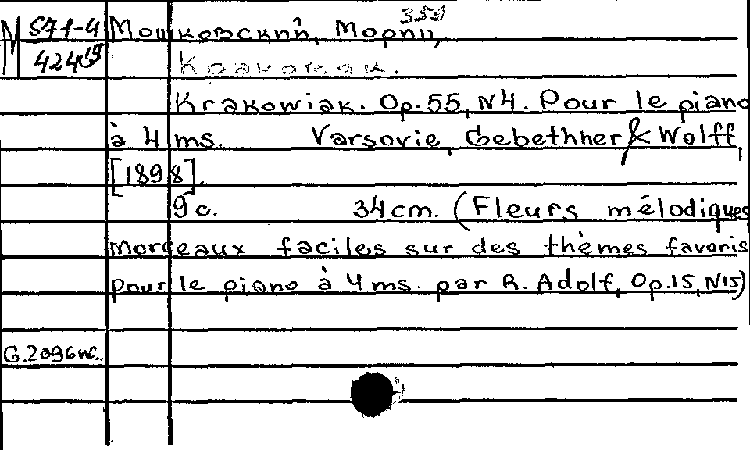 М 571-4 Мошковский, Мориц,
424
Краковяк.
Krakowiak. Op. 55, N4. Pour le piano
à 4 ms. Varsovie, Gebethner & Wolff,
[1898].
9 с. 34 cm. (Fleurs mélodiques
Morceaux faciles sur des thèmes favoris
pour le piano à 4 ms. par R. Adolf, Op.15, N15)